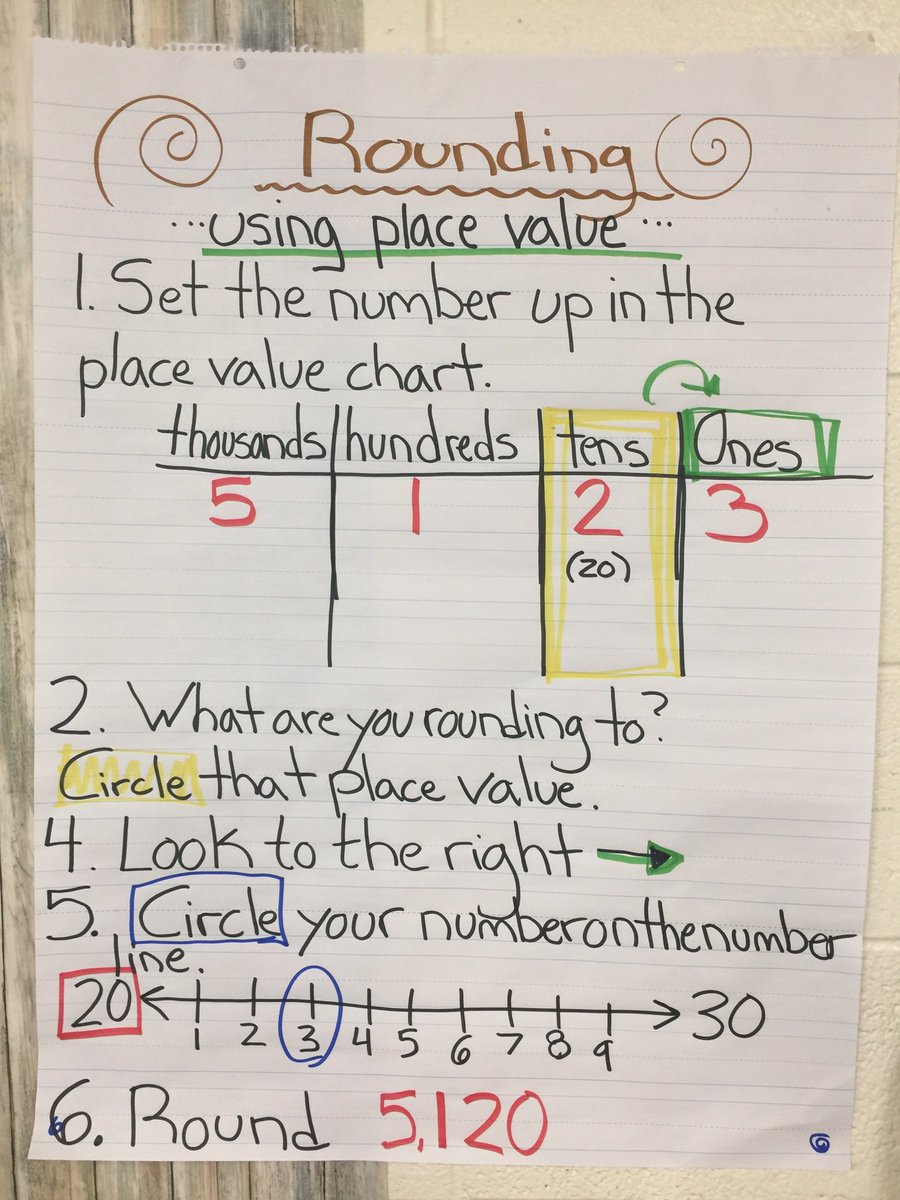 Rounding
...using place value...
1. Set the number up in the
place value chart.
thousands hundreds tens Ones
5 1 2 3
(20)
2. What are you rounding to?
Circle that place value.
4. Look to the right
5. Circle your number on the number
line.
20 30
1 2 3 4 5 6 7 8 9
6. Round 5,120